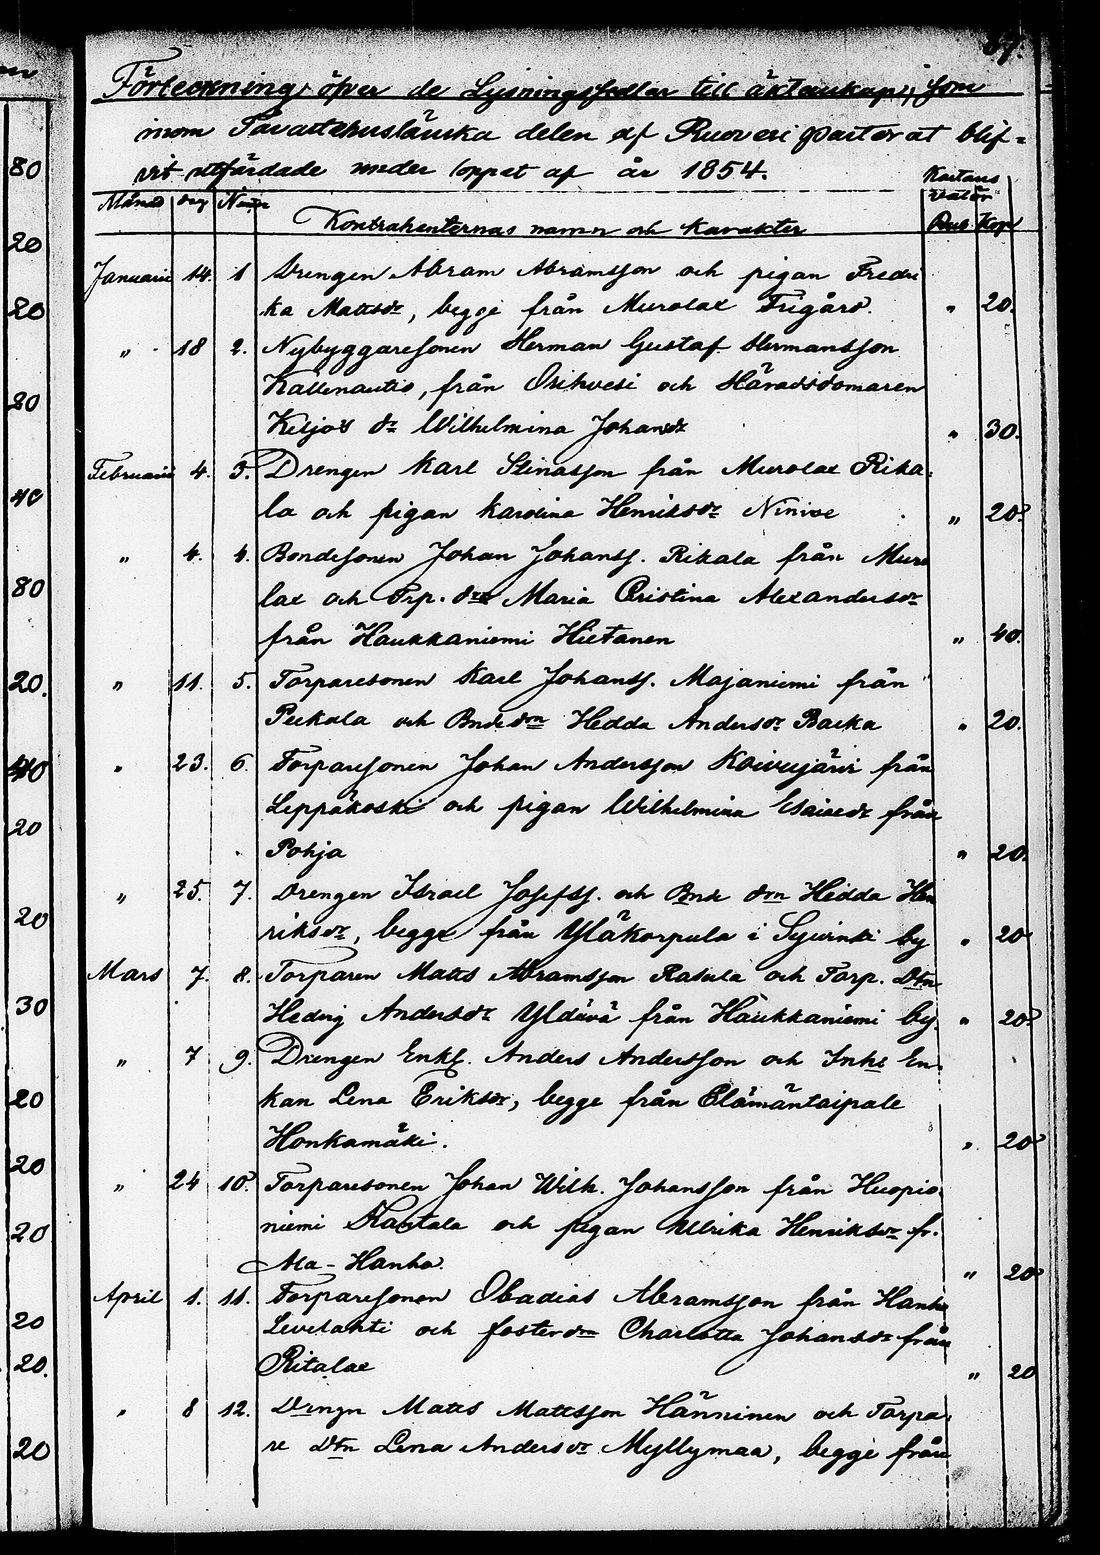 87.
Förteckning öfver de Lysningssedlar till äktenskap, som
inom Tavastehuslänska delen af Ruovesi pastorat blif-
vit utfärdade under loppet af år 1854.
Kartans
valör
Månad dag Num Kontrahenternas namn och karakter Rub Kop
Januarii 14. 1 Drengen Abram Abramsson och pigan Fredri
ka Mattsdr, begge från Murolae Frigård. " 20.
" 18 2. Nybyggaresonen Herman Gustaf Hermansson
Kallenautio, från Orihvesi och Häradsdomaren
Keljos dr Wilhelmina Johansdr " 30.
Februarii 4. 3. Drengen Karl Stinasson från Murolae Rika-
la och pigan Karolina Henriksdr Ninive " 20.
" 4. 4. Bondesonen Johan Johanss. Rikala från Muro
lae och Trp. dtr Maria Cristina Alexandersdr
från Haukkaniemi Hietanen " 40.
" 11. 5. Torparesonen Karl Johanss. Majaniemi från
Pekkala och Bnde dtn Hedda Andersdr Backa " 20.
" 23. 6. Torparesonen Johan Andersson Koivujärvi från
Leppäkoski och pigan Wilhelmina Esaiedr från
Pohja " 20.
" 25. 7. Drengen Israel Josefss. och Bnde dtn Hedda Hen
riksdr, begge från Yläkorpula i Syvinki by " 20
Mars 7. 8. Torparen Matts Abramsson Rasula och Torp. Dtn
Hedvig Andersdr Yldävä från Haukkaniemi by. " 20
" 7 9. Drengen Enkl. Anders Andersson och Inhs En-
kan Lena Eriksdr, begge från Elämäntaipale
Honkamäki. " 20
" 24 10. Torparesonen Johan Wilh. Johansson från Huopio
niemi Hantala och pigan Ulrika Henriksdr fr.
Ala-Hanho. " 20
April 1. 11. Torparesonen Obadias Abramsson från Hanho
Levelahti och fosterdtn Charlotta Johansdr från
Ritalae " 20
" 8 12. Drngn Matts Mattsson Hänninen och Torpa-
re Dtn Lena Andersdr Myllymaa, begge från
80
20
20
20
40
80
20.
40
20
20
30
20
20
20
20
20.
20